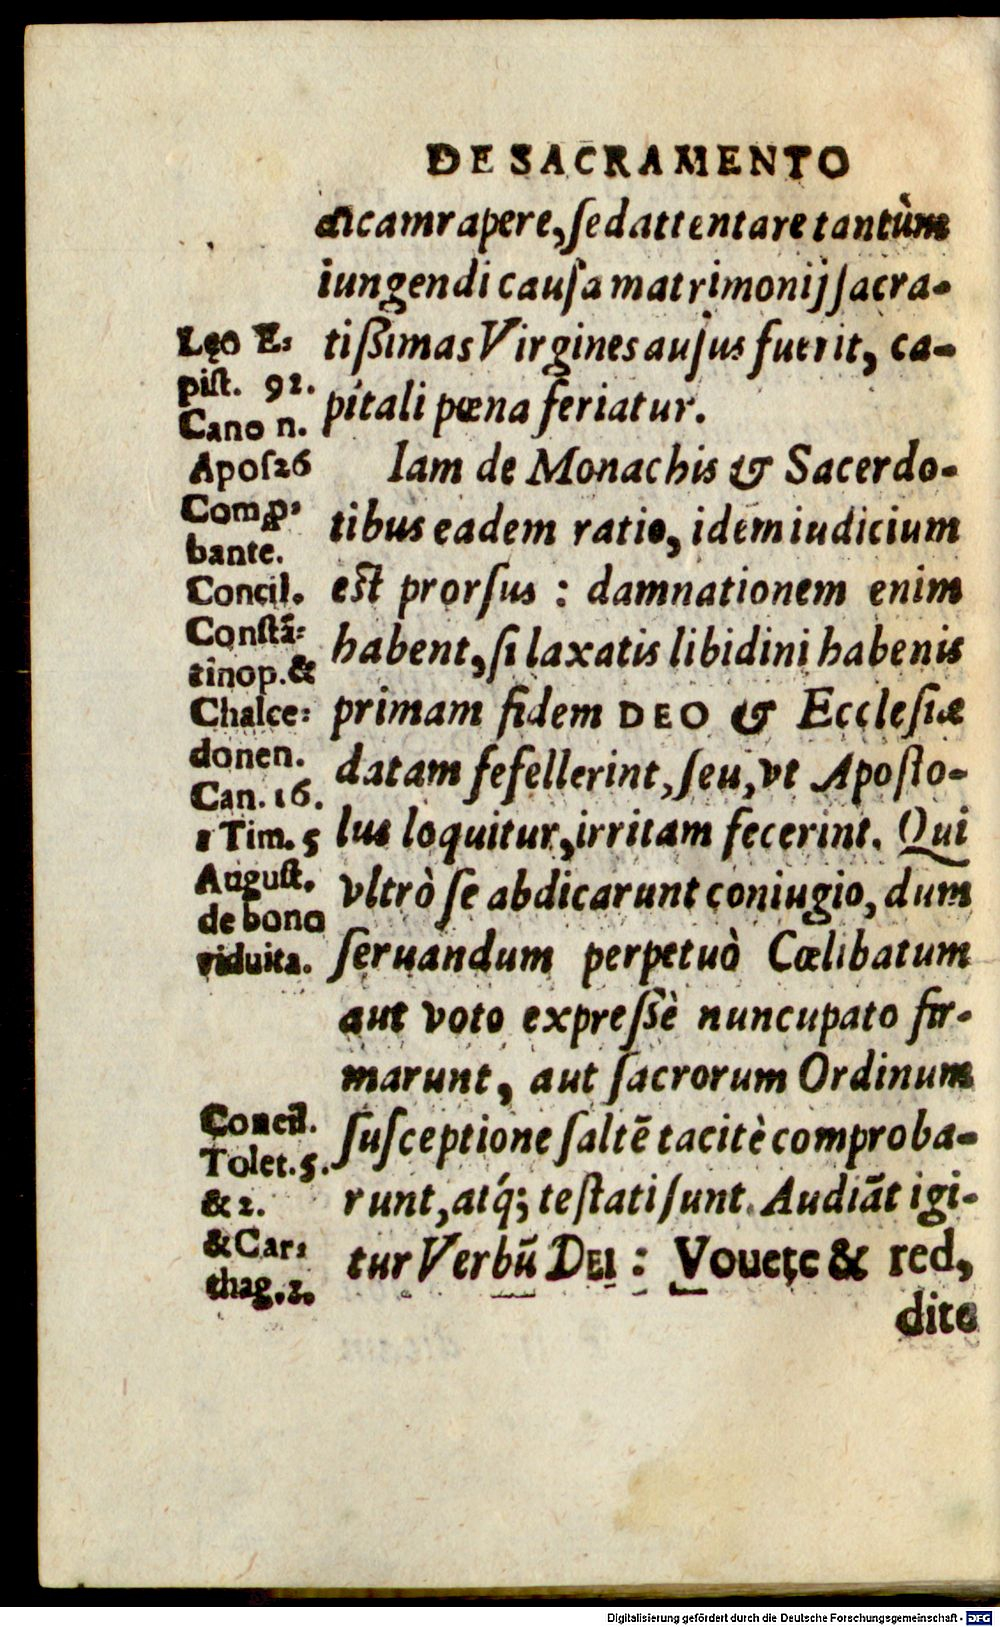 DE SACRAMENTO
dicam rapere, ſed attentare tantùm
iungendi cauſa matrimonij ſacra-
tißimas Virgines auſus fuerit, ca-
pitali pœna feriatur.
Iam de Monachis & Sacerdo-
tibus eadem ratio, idem iudicium
eſt prorſus : damnationem enim
habent, ſi laxatis libidini habenis
primam fidem DEO & Eccleſiæ
datam fefellerint, ſeu, vt Apoſto-
lus loquitur, irritam fecerint. Qui
vltrò ſe abdicarunt coniugio, dum
ſeruandum perpetuò Cœlibatum
aut voto expreßè nuncupato fir-
marunt, aut ſacrorum Ordinum
ſuſceptione ſaltẽ tacitè comproba-
runt, atq́; teſtati ſunt. Audiãt igi-
tur Verbũ DEI : Vouete & red,
dite
Leo E-
piſt. 92.
Cano n.
Apoſ26
Comꝓ-
bante.
Concil.
Conſtã-
tinop. &
Chalce-
donen.
Can. 16.
1 Tim. 5
Auguſt.
de bono
viduita.
Concil.
Tolet. 5.
& 2.
& Car-
thag. 2.
Digitalisierung gefördert durch die Deutsche Forschungsgemeinschaft - DFG